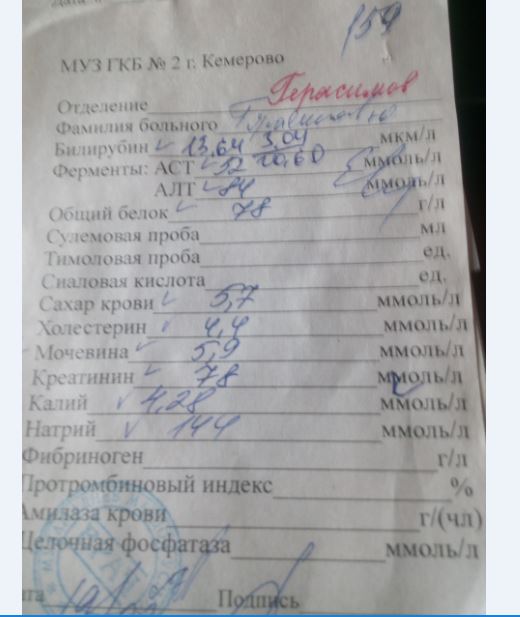 159
МУЗ ГКБ № 2 г. Кемерово
Герасимов
Отделение
Фамилия больного
Билирубин 13,64 3,04 мкм/л
10,60
Ферменты: АСТ 52 ммоль/л
АЛТ 84 ммоль/л
Общий белок 78 г/л
Сулемовая проба мл
Тимоловая проба ед.
Сиаловая кислота ед.
Сахар крови 5,7 ммоль/л
Холестерин 4,4 ммоль/л
Мочевина 5,9 ммоль/л
Креатинин 78 ммоль/л
Калий 4,28 ммоль/л
Натрий 144 ммоль/л
Фибриноген г/л
Протромбиновый индекс %
Амилаза крови г/(чл)
Щелочная фосфатаза ммоль/л
Подпись